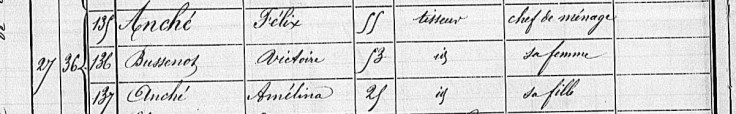 135 Anché Félix 55 tisseur chef de ménage
27 36 136 Bussenot Victoire 53 id sa femme
137 Anché Amélina 25 id sa fille